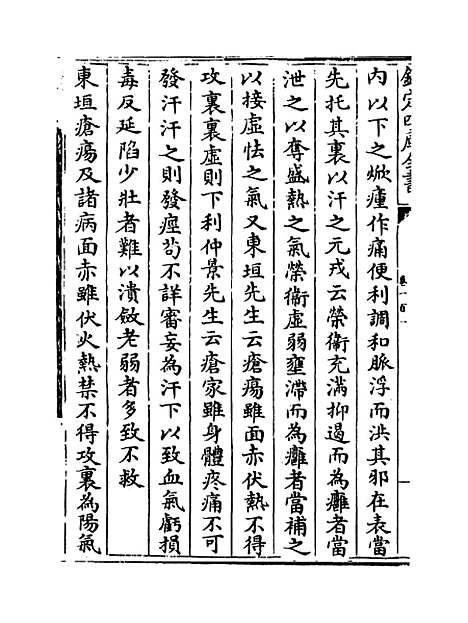 欽定四庫全書
卷一百一
內以下之焮瘇作痛便利調和脈浮而洪其邪在表當
先托其裏以汗之元戎云榮衞充滿抑遏而為癰者當
泄之以奪盛熱之氣榮衞虛弱壅滯而為癰者當補之
以接虛怯之氣又東垣先生云瘡瘍雖面赤伏熱不得
攻裏裏虛則下利仲景先生云瘡家雖身體疼痛不可
發汗汗之則發痙茍不詳審妄為汗下以致血氣虧損
毒反延陷少壯者難以潰斂老弱者多致不救
東垣瘡瘍及諸病面赤雖伏火熱禁不得攻裏為陽氣